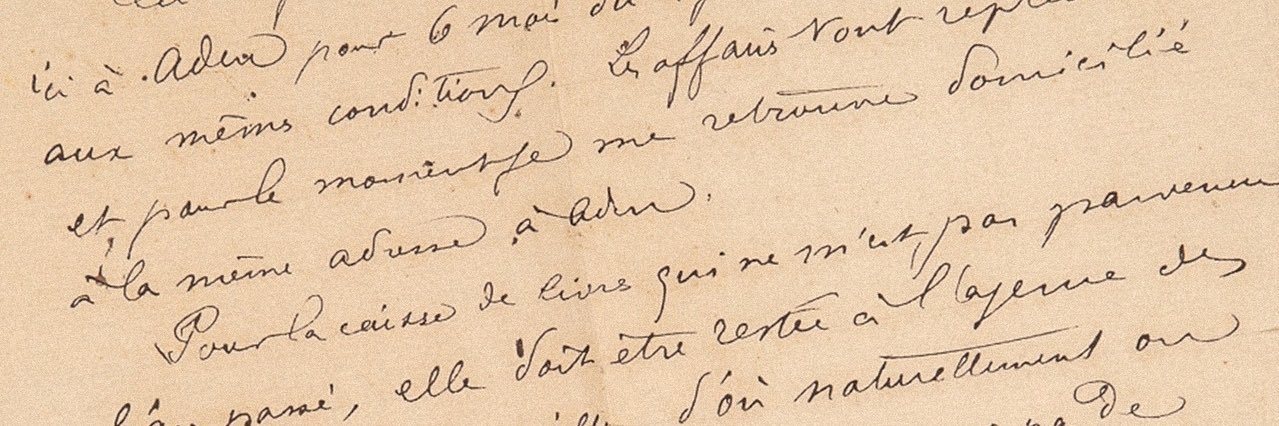 ici à Aden pour 6 mois du
aux mêmes conditions. Les affaires vont
et pour le moment je me retrouve domicilié
à la même adresse à Aden.
Pour la caisse de livres qui ne m'est pas parvenue
l'an passé, elle doit être restée à l'agence des
d'où naturellement on
de